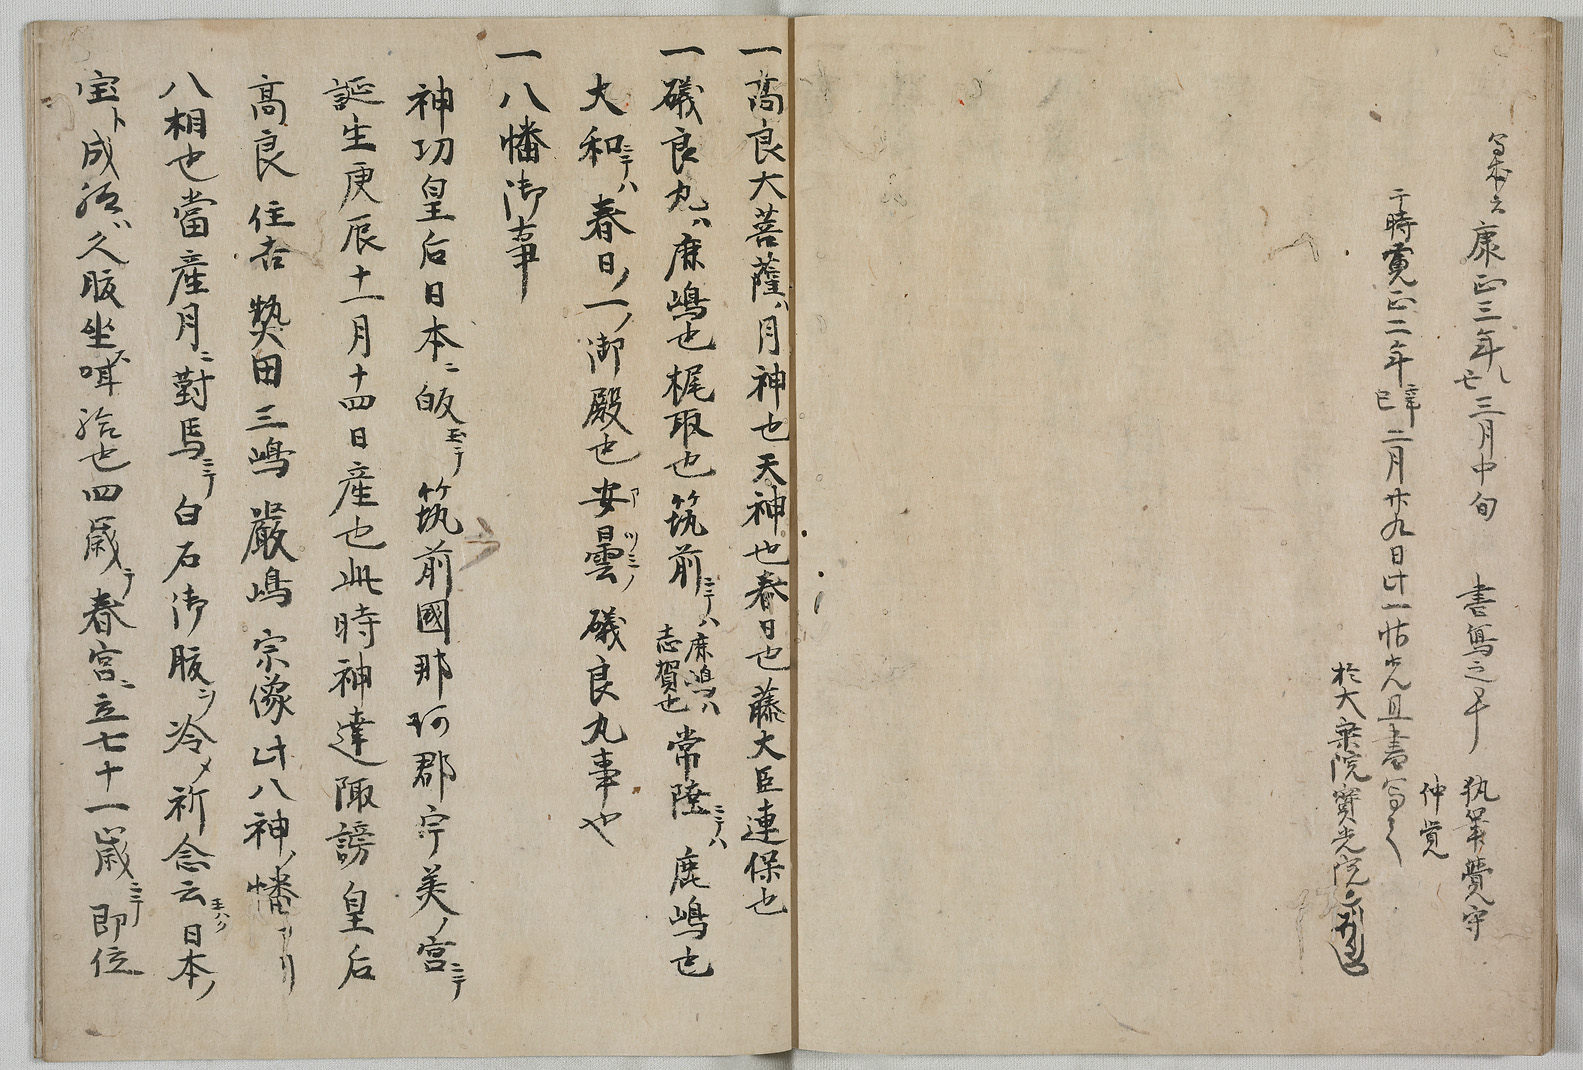 写本云康正三年丁丑三月中旬 書写之畢 執筆賛守
仲覚
于時寛正二年辛巳二月廿九日此一帖先且書写之
於大乗院寶光院
一高良大菩薩ハ月神也天神也春日也藤大臣連保也
一礒良丸ハ鹿嶋也梶取也筑前ニテハ鹿嶋ハ志賀也常陸ニテハ鹿嶋也
大和ニテハ春日ノ一ノ御殿也安曇アツミノ礒良丸事也
一八幡御事
神功皇后日本ニ皈玉テ筑前國那珂郡宇美ノ宮ニテ
誕生庚辰十二月十四日産也此時神達陬謗皇后
高良住吉𤍠田三嶋嚴嶋宗像此八神ノ幡ナリ
八相也當産月ニ對馬ニテ白石御腹ヲ冷メ祈念云日本ノ
宝ト成給ハハ久腹坐サ給也四歳ニテ春宮ニ立七十一歳ニテ即位